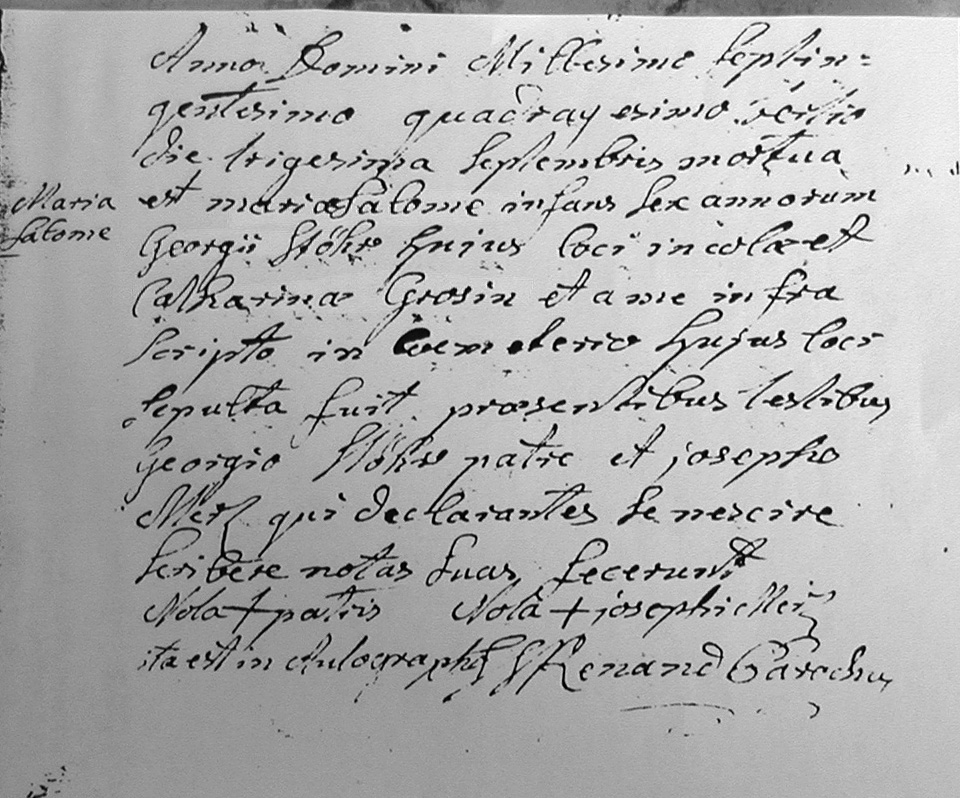 Anno Domini Millesimo Septin=
gentesimo quadragesimo tertio
die trigesima Septembris mortua
Maria
Salome
est maria Salome infans sex annorum
Georgii Stöhr hujus loci incolæ et
Catharinæ Grosin et a me infra
scripto in Coemeterio hujus loci
sepulta fuit præsentibus testibus
Georgio Stöhr patre et josepho
Merz qui declarantes se nescire
scribere notas suas fecerunt
Nota + patris Nota + josephi Merz
ita est in Autographo Renand Parochus